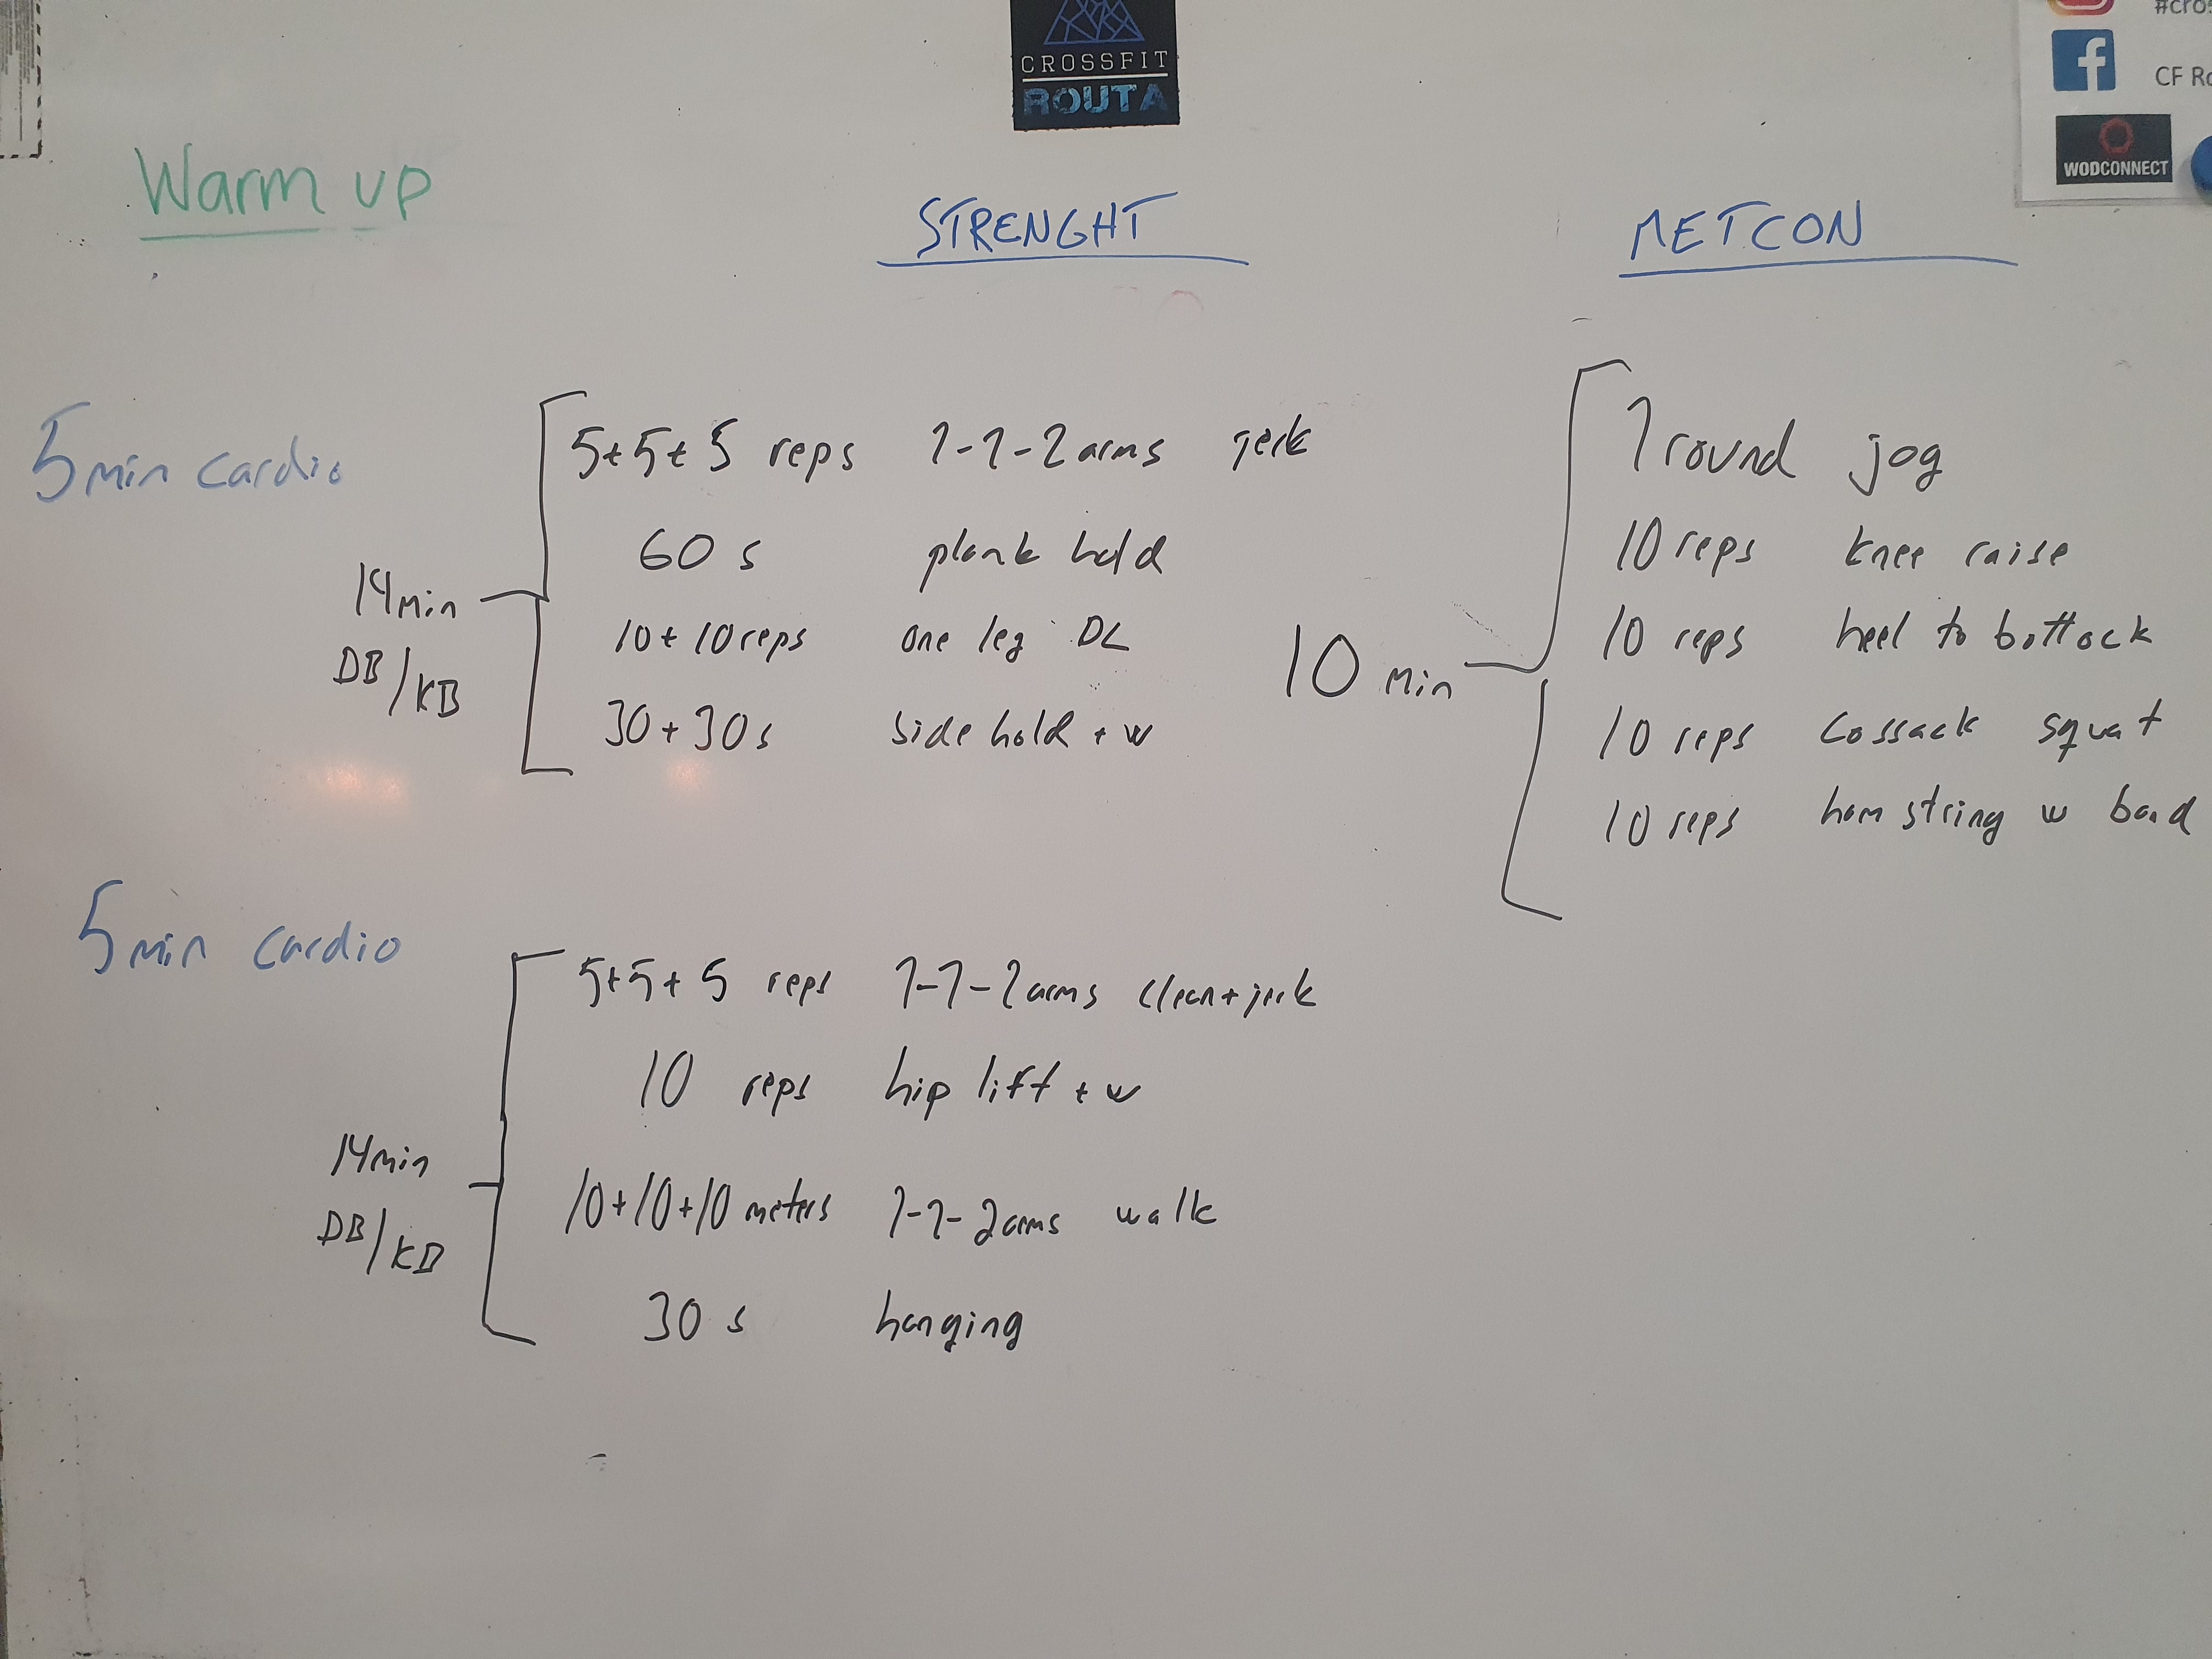 CROSSFIT
ROUTA
CF Ro
WODCONNECT
Warm up
5 min cardio
STRENGHT
14 min
DB/KB
5+5+5 reps 1-1-2 arms jerk
60 s plank hold
10+10 reps one leg DL
30+30s side hold + w
5 min cardio
14 min
DB/KB
5+5+5 reps 1-1-2 arms clean+jerk
10 reps hip lift + w
10+10+10 meters 1-1-2 arms walk
30 s hanging
METCON
10 min
1 round jog
10 reps knee raise
10 reps heel to bottock
10 reps cossack squat
10 reps hamstring w band